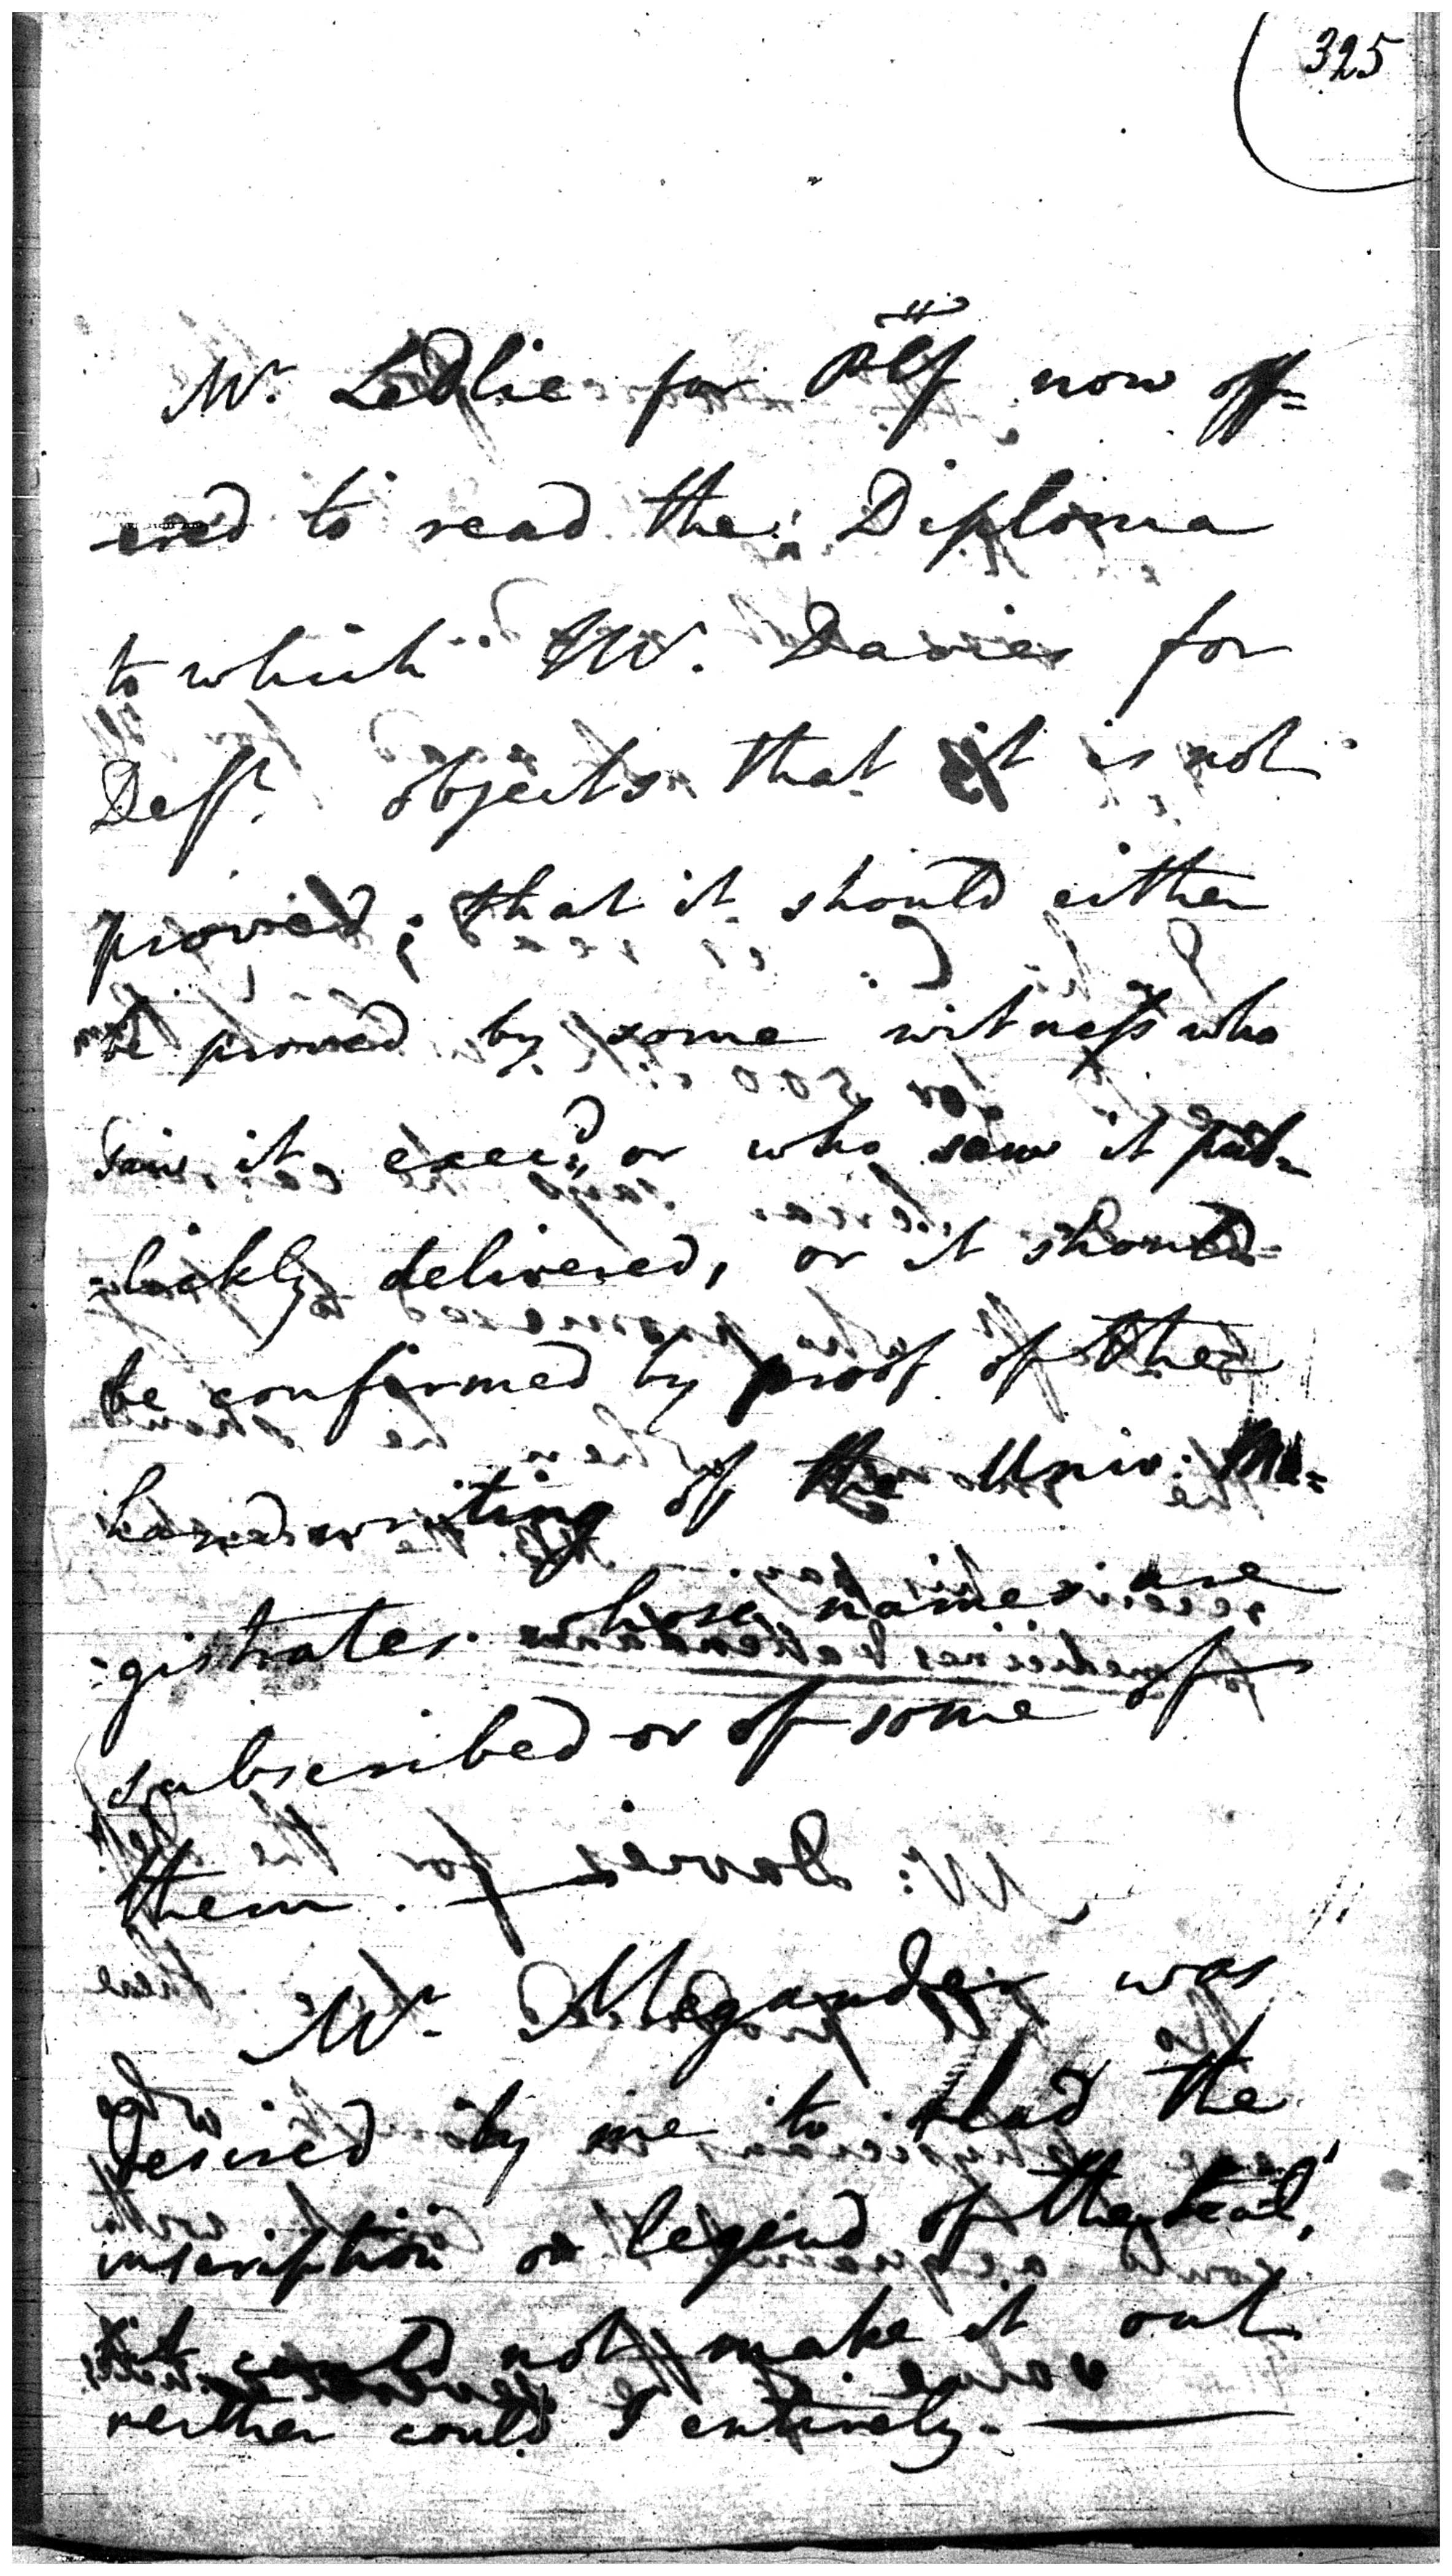 325
Mr. Ledlie for Plf now off=
-ered to read the Diploma
to which Mr. Davies for
Deft. objects that it is not
proved; that it should either
be proved by some witness who
saw it exec'd, or who saw it pub=
=lickly delivered, or it should
be confirmed by proof of the
handwriting of the Univ: Ma=
=gistrates whose names are
subscribed or of some of
them.
Mr. was
desired by me to read the
inscription or legend of the seal,
but could not make it out
neither could I entirely.